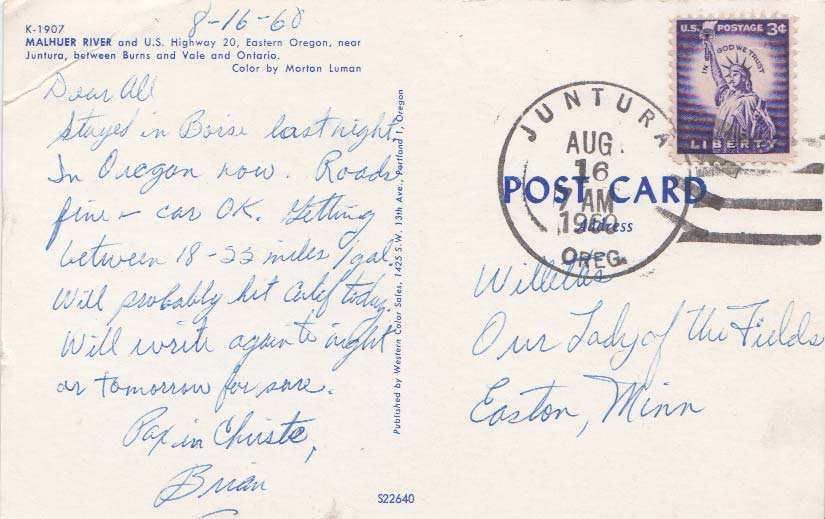 8-16-60
K-1907
MALHUER RIVER and U.S. Highway 20, Eastern Oregon, near
Juntura, between Burns and Vale and Ontario.
Color by Morton Luman
Dear All
Stayed in Boise last night.
In Oregon now. Roads
fine – car OK. Getting
between 18-22 miles/gal.
Will probably hit Calif today.
Will write again to night
or tomorrow for sure.
Pax in Christo,
Brian
Published by Western Color Sales, 1425 S.W. 13th Ave., Portland 1, Oregon
S22640
U.S. POSTAGE 3¢
IN GOD WE TRUST
LIBERTY
JUNTURA
AUG
16
7 AM
1960
OREG.
POST CARD
Address
Our Lady of the Fields
Easton, Minn